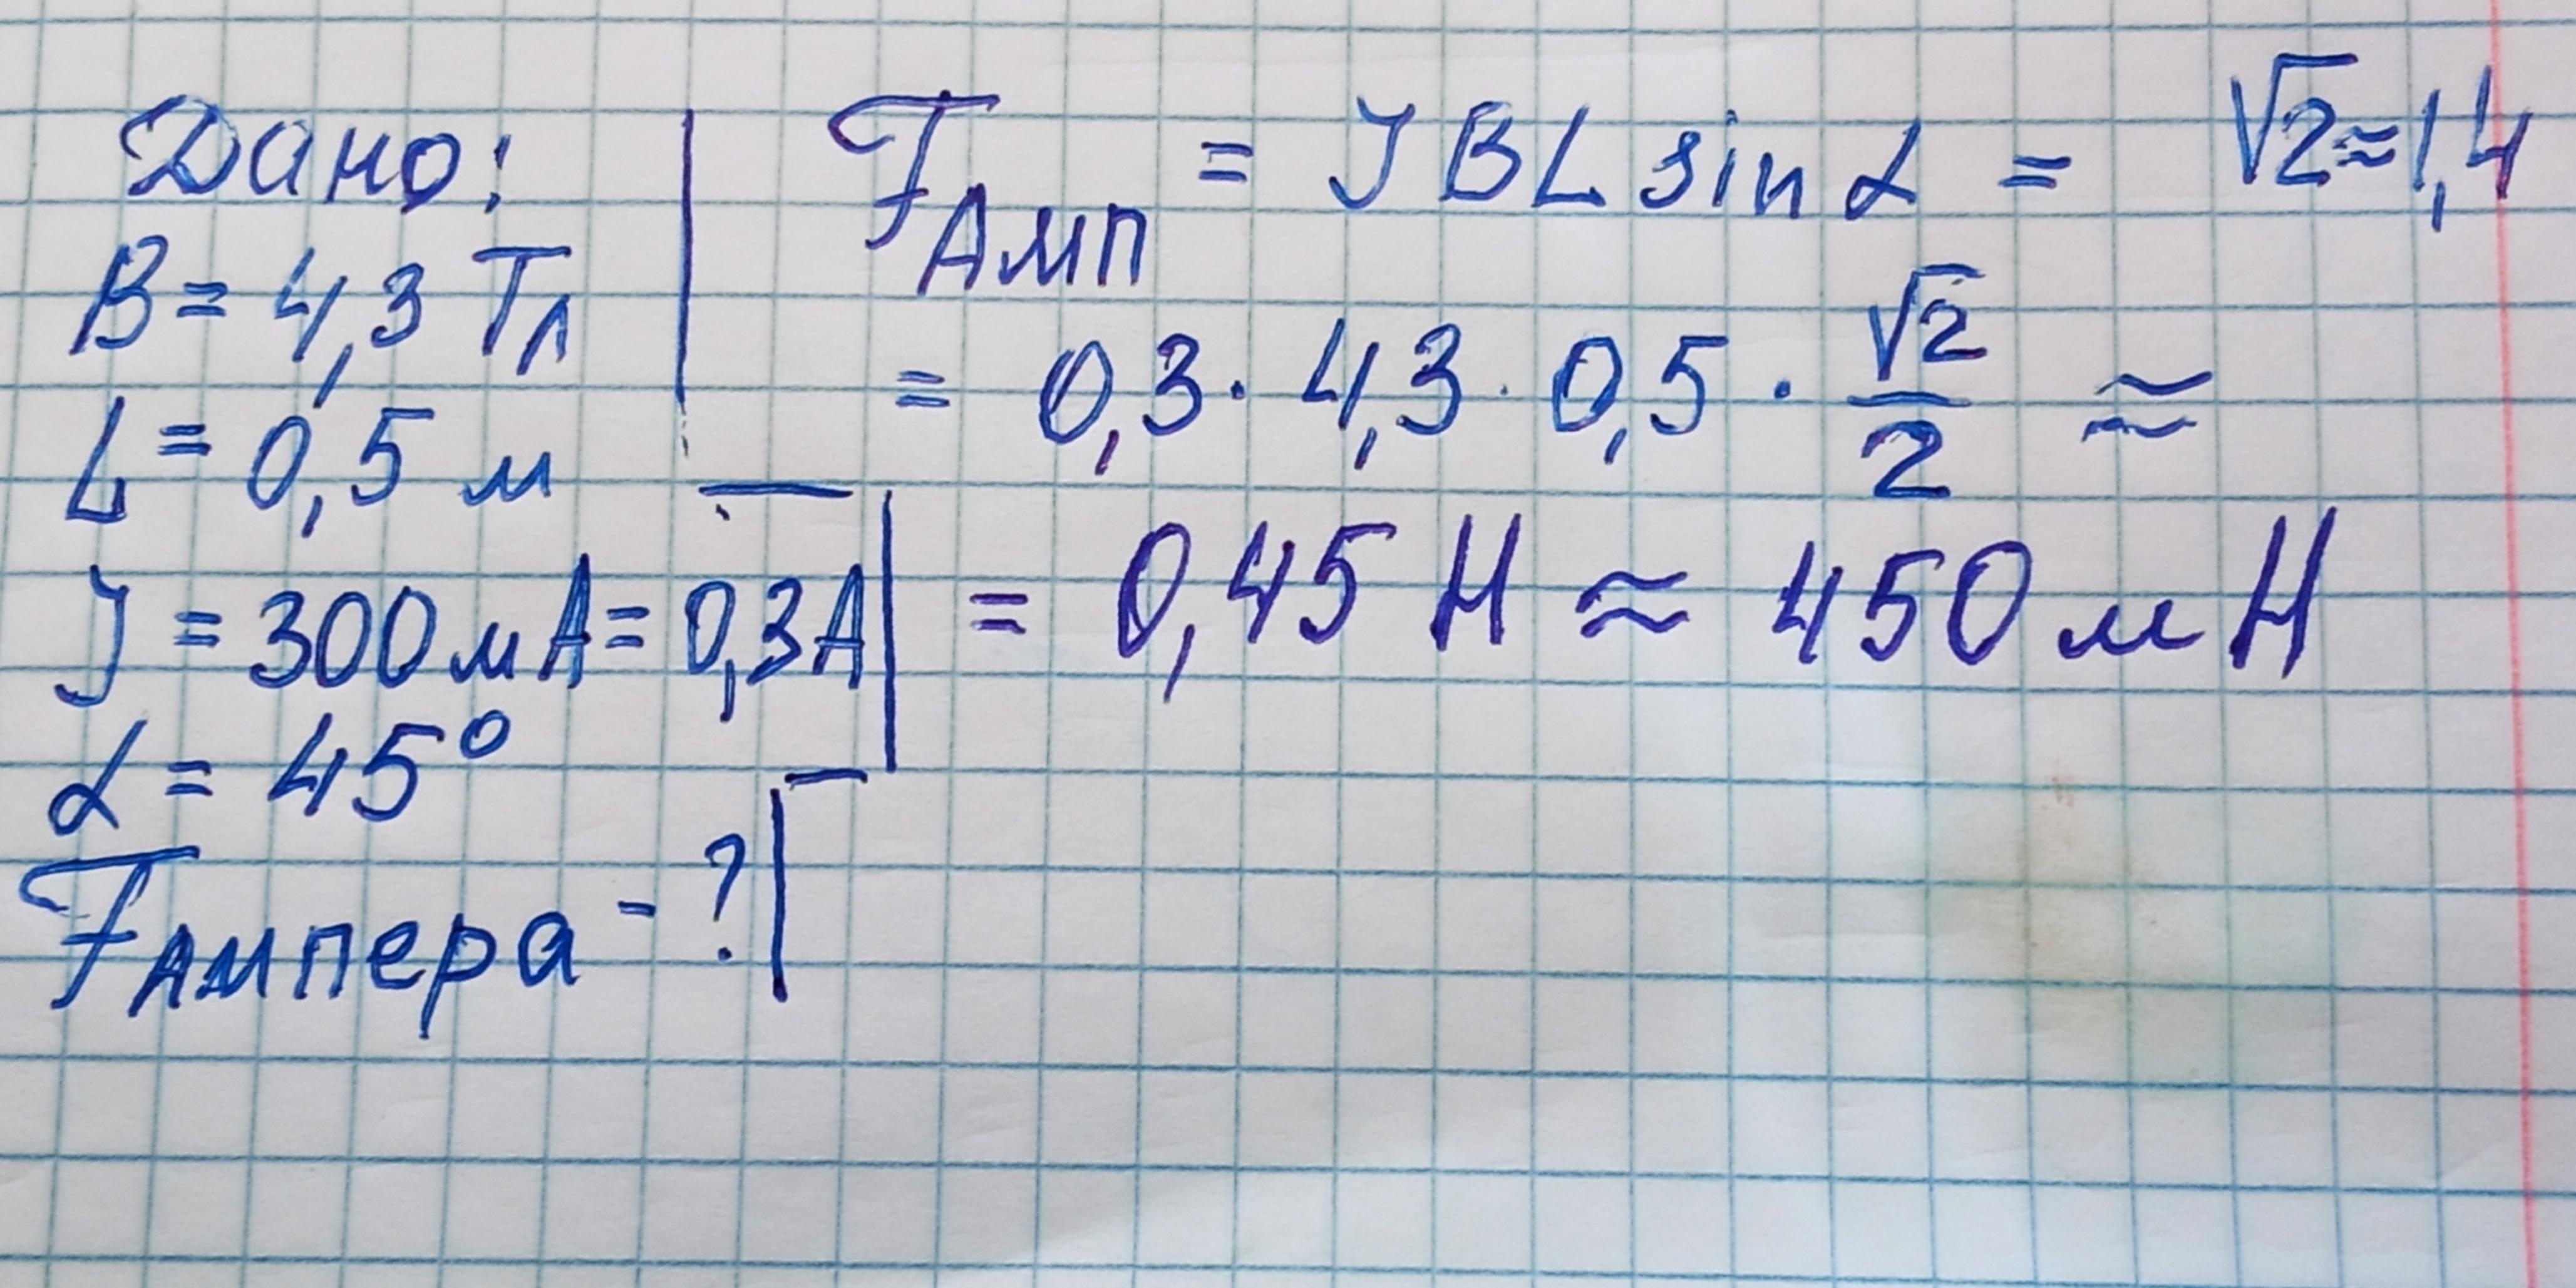 Дано:
B = 4,3 Тл
L = 0,5 м
J = 300 мА = 0,3А
α = 45°
FАмпера - ?
FАмп = J B L sin α =
√2 ≈ 1,4
= 0,3 · 4,3 · 0,5 · √2/2 ≈
= 0,45 Н ≈ 450 мН